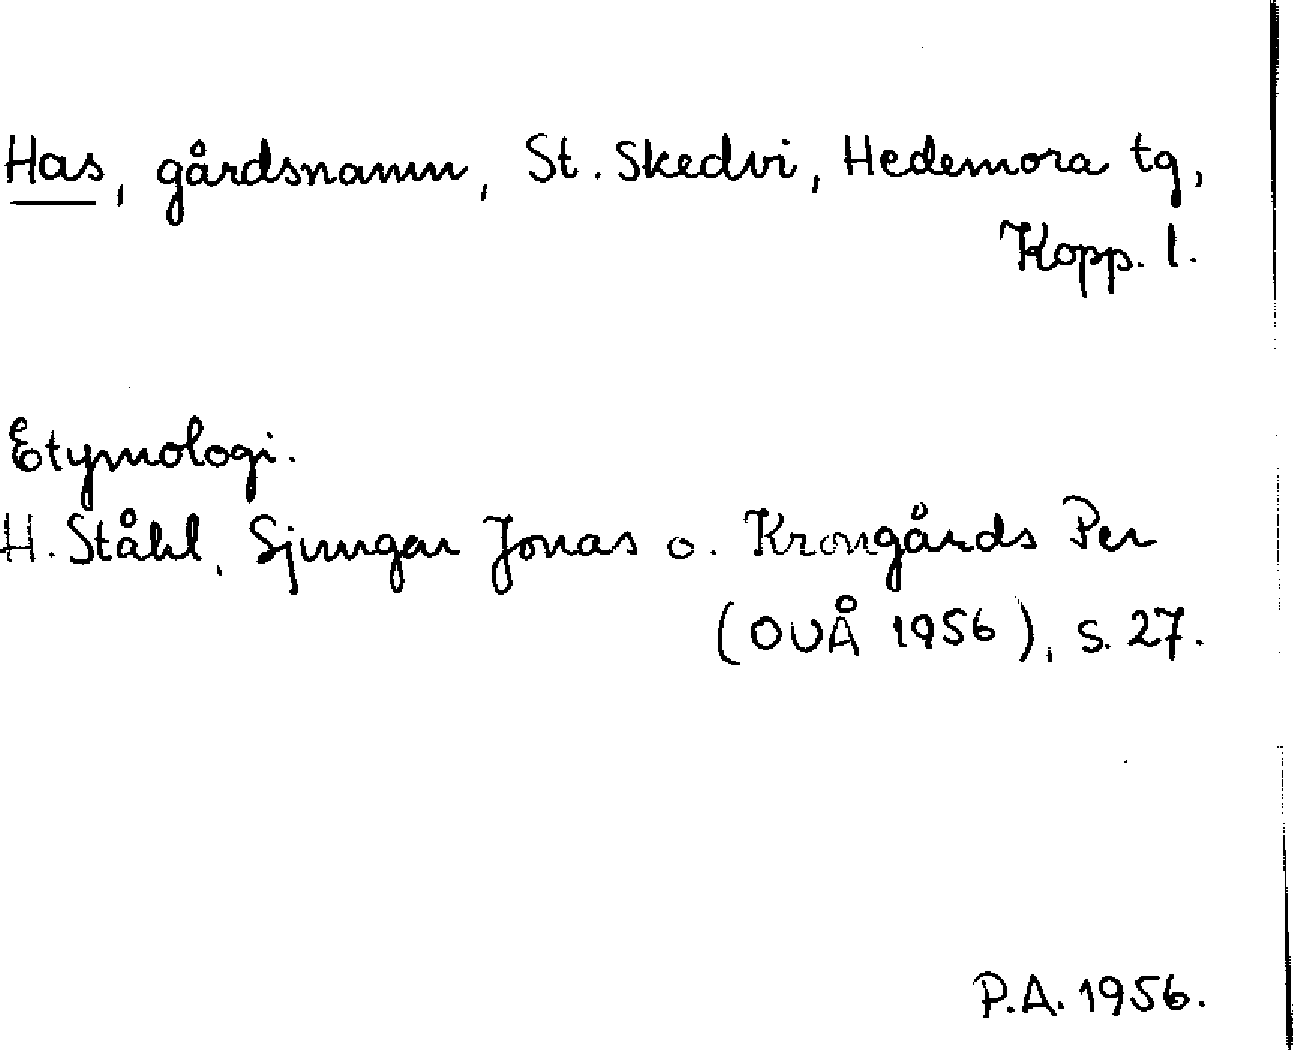 Has, gårdsnamn, St. Skedvi, Hedemora tg,
Kopp. l.
Etymologi.
H. Ståhl, Sjungar Jonas o. Krongårds Per
(OUÅ 1956), s. 27.
P.A. 1956.